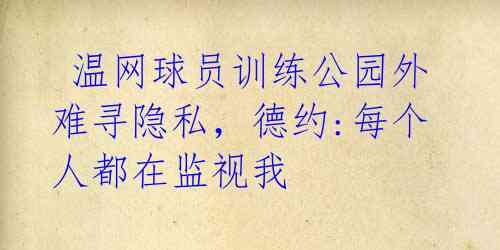 温网球员训练公园外
难寻隐私，德约:每个
人都在监视我